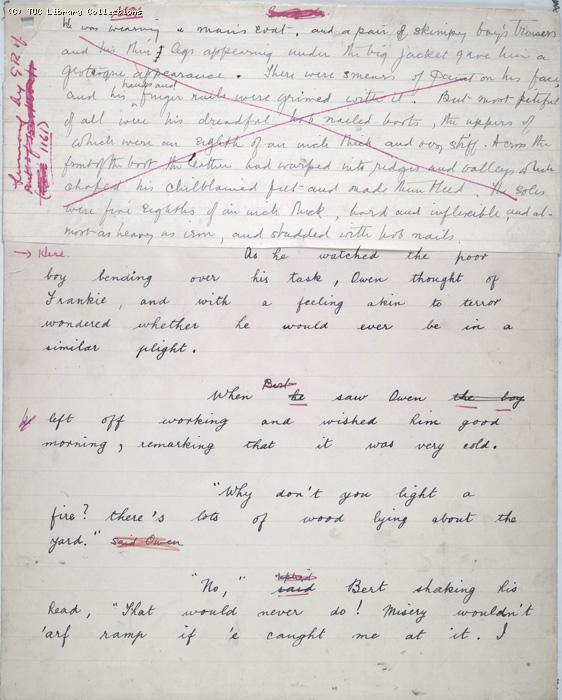 (c) TUC Library Collections
He was wearing a man's coat, and a pair of skimpy boy's trousers
and his thin legs appearing under the big jacket gave him a
grotesque appearance. There were smears of paint on his face,
hands and
and his finger nails were grimed with it. But most pitiful
of all were his dreadful hob nailed boots, the uppers of
which were an eighth of an inch thick and very stiff. Across the
front of the boot the leather had warped into ridges and valleys which
chafed his chilblained feet and made them bleed. The soles
were five eighths of an inch thick, hard and inflexible, and al-
most as heavy as iron, and studded with hob nails.
→ Here. As he watched the poor
boy bending over his task, Owen thought of
Frankie, and with a feeling akin to terror
wondered whether he would ever be in a
similar plight.
Bert
When he saw Owen the boy
left off working and wished him good
morning, remarking that it was very cold.
"Why don't you light a
fire? there's lots of wood lying about the
yard." said Owen
replied
"No," said Bert shaking his
head, "That would never do! Misery wouldn't
'arf ramp if 'e caught me at it. I